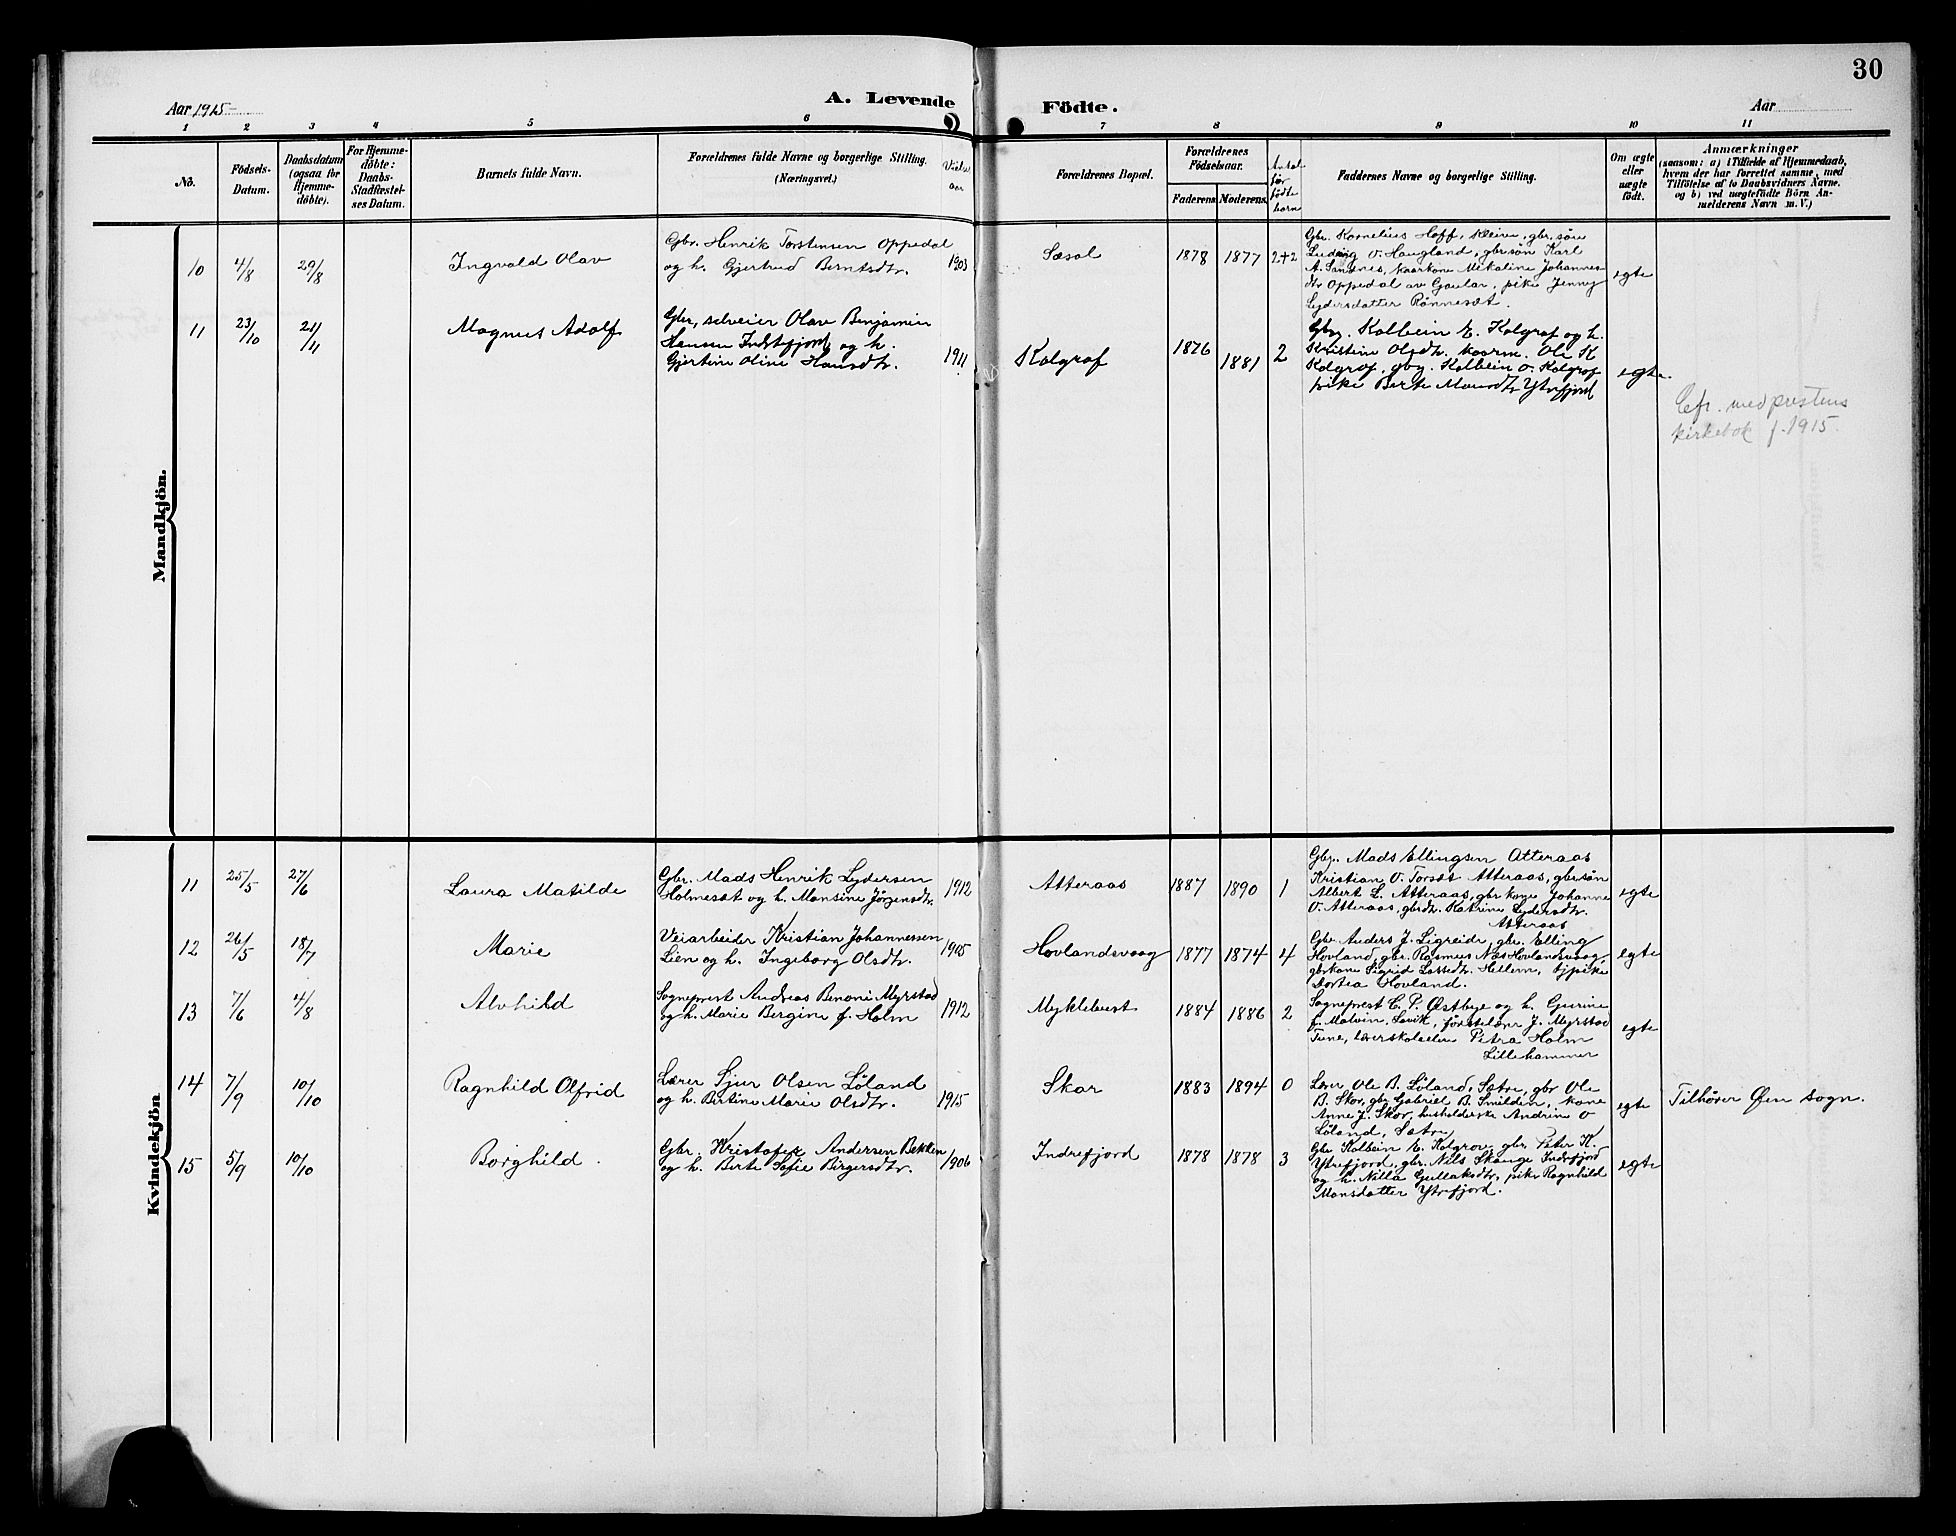 30
Aar 1915
A. Levende
Födte.
Aar
1 2 3 4 5 6 7 8 9 10 11
No.
Födsels-
Datum.
Daabsdatum
(ogsaa for
Hjemme-
döbte).
For Hjemme-
döbte:
Daabs-
Stadfæstel-
ses Datum.
Barnets fulde Navn.
Forældrenes fulde Navne og borgerlige Stilling.
(Næringsvei.)
Vielses
aar
Forældrenes Bopæl.
Forældrenes
Födselsaar.
Faderens.
Moderens.
Antal
før
fødte
børn
Faddernes Navne og borgerlige Stilling.
Om ægte
eller
uægte
födt.
Anmærkninger
(saasom: a) i Tilfælde af Hjemmedaab,
hvem der har forrettet samme, med
Tilföielse af to Daabsvidners Navne.
og b) ved uægtefödte Börn An-
melderens Navn m. V.)
Mandkjön.
10 4/8 29/8 Ingvald Olav
Gbr. Henrik Torstensen Oppedal
og h. Gjertrud Berntsdtr.
1903 Sæsol 1878 1877 2+2
Gbr. Kornelius Hoff, Kleive, gbr. søn
Ludvig O. Haugland, gbr søn Karl
A. Sandnes, kaarkone Mikaline Johannes-
dtr Oppedal av Gaular, pike Jenny
Lydersdatter Rönneset.
egte
11 23/10 21/4 Magnus Adolf
Gbr, Olav Benjamin
Hansen Indrefjord og h.
Gjertine Oline Hansdtr.
1911 Kolgrof 1876 1881 2
Gbr. Kolbein E. Kolgrof og h.
Kristine Olsdtr. kaarm. Ole K
Kolgrof, gbg. Kolbein O. Kolgrof
pike Berte Monsdtr Ytrefjord
egte
Cfr. med prestens
kirkebok f. 1915.
Kvindekjön
11 25/5 27/6 Laura Matilde
Gbr. Mads Henrik Lydersen
Holmeset og h. Monsine Jörgensdtr.
1912 Atteraas 1887 1890 1
Gbr. Mads Ellingsen Atteraas
Kristian O. Torsæt Atteraas, gbr søn
Albert L. Atteraas, gbr kone Johanne
O. Atteraas, gbrdtr. Katrine Lydersdtr.
Atteraas
egte
12 26/5 18/7 Marie
Veiarbeider Kristian Johannessen
Lien og h. Ingeborg Olsdtr.
1905 Hovlandsvaag 1877 1874 4
Gbr. Anders J. Ligreide, gbr. Elling
Hovland, gbr. Rasmus Næs Hovlandsvaag,
gbrkone Sigrid Lassedtr. Hellem, tjpike
Dortea Hovland.
egte
13 7/6 4/8 Alvhild
Sogneprest Andreas Benoni Myrstad
og h. Marie Bergine f. Holm
1912 Myklebust 1884 1886 2
Sogneprest C. P. Østbye og h. Gurine
f. Malvin, Lavik, förstelærer J. Myrstad
Tune, lærerskoleelev Petra Holm
Lillehammer
egte
14 7/9 10/10 Ragnhild Olfrid
Lærer Sjur Olsen Löland
og h. Bertine Marie Olsdtr.
1915 Skar 1883 1894 0
Lærer Ole B. Löland, Sætre, gbr Ole
B. Skor, gbr Gabriel B. Smilden, kone
Anne J. Skor, husholderske Andrine O
Löland, Sætre
egte
Tilhører Øen sogn.
15 5/9 10/10 Borghild.
Gbr. Kristofer Andersen Bekken
og h. Berte Sofie Birgersdtr.
1906 Indrefjord 1878 1878 3
Gbr Kolbein E. Kolgrov, gbr Peter K.
Ytrefjord, gbr. Nils Skange Indrefjord
og h. Nilla Gullaksdtr, pike Ragnhild
Monsdatter Ytrefjord.
egte